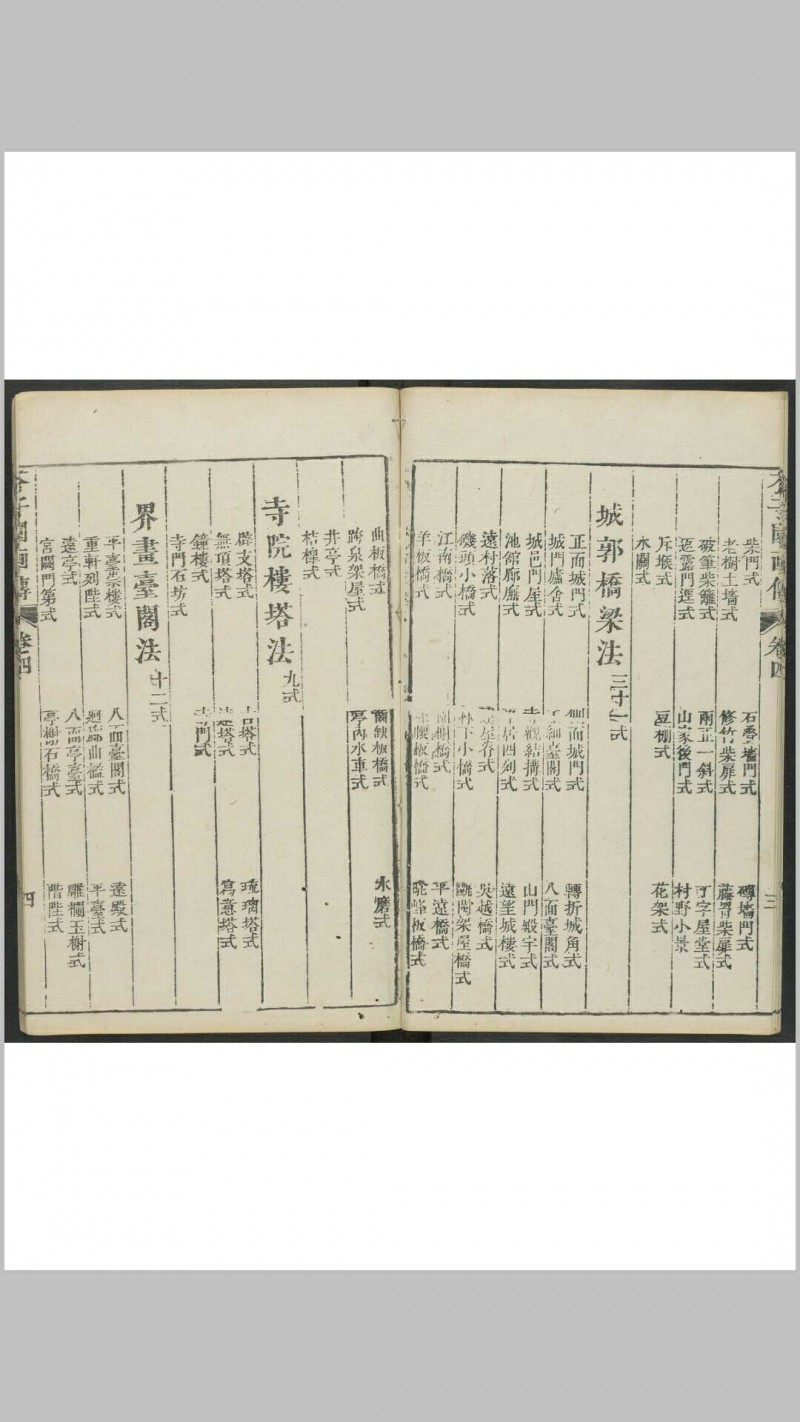 柴門式 石壘墻門式 磚墻門式
老樹土墻式 修竹柴扉式 藤罥柴扉式
破筆柴籬式 兩正一斜式 丁字屋堂式
逕露門逕式 山家後門式 村野小景
斥堠式
水閣式 豆棚式 花架式
城郭橋梁法 三十一式
正面城門式 側面城門式 轉折城角式
城門廬舍式 臺閣式 八面臺閣式
城邑門屋式 寺觀結搆式 山門殿宇式
池館廊廡式 居四列式 遠望城樓式
遠村落式 屋脊式 吳越橋式
磯頭小橋式 林下小橋式 閣架屋橋式
江南橋式 橋式 平遠橋式
羊板橋式 腰板橋式 板橋式
三
曲板橋式 板橋式 水磨式
跨泉架屋式 亭內水車式
井亭式
桔槔式
寺院樓塔法 九式
辟支塔式 古塔式 琉璃塔式
無頂塔式 遠塔式 寫意塔式
鐘樓式 寺門式
寺門石坊式
界畫臺閣法 十二式
平臺崇樓式 八面臺閣式 遠殿式
重軒列陛式 迴廊曲檻式 平臺式
遠亭式 八面亭臺式 雕欄玉榭式
宮闕門第式 亭榭石橋式 階陛式
芥子園畫傳 卷四
四